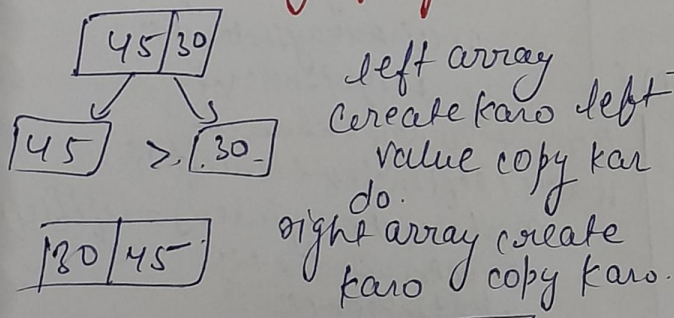 45 30
45 > 30
30 45
left array
create karo left
value copy kar
do.
right array create
karo copy karo.